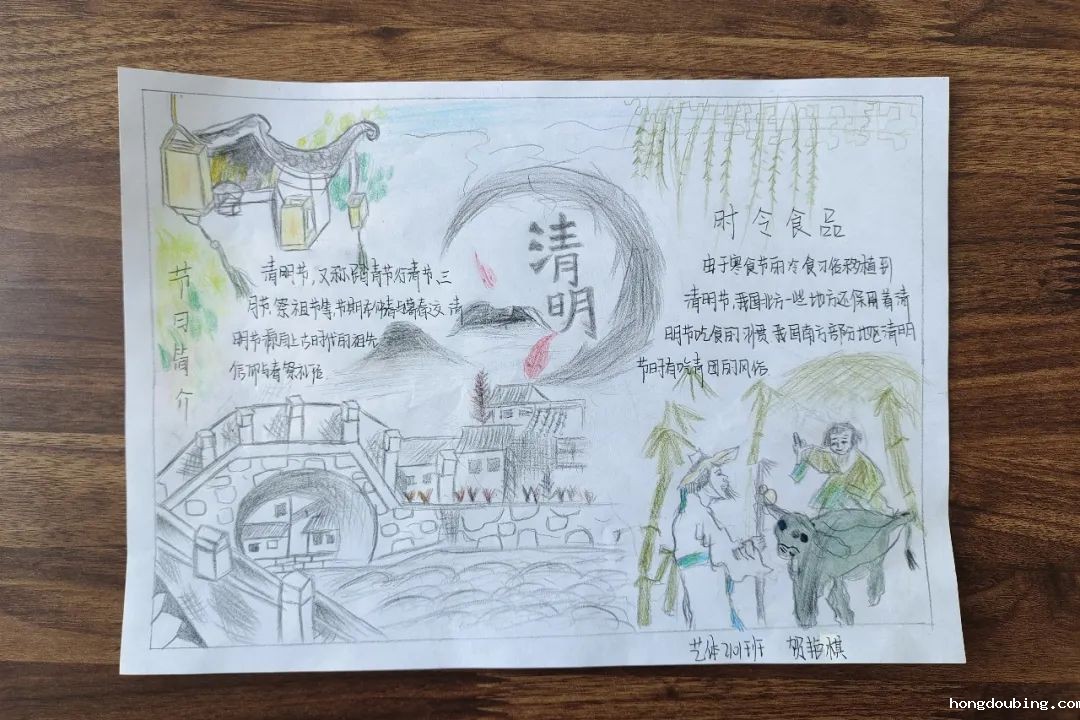 清明
节日简介
清明节,又称踏青节、行清节、三
月节、祭祖节等,节期在仲春与暮春之交,清
明节源自上古时代的祖先
信仰与春祭礼俗
时令食品
由于寒食节的冷食习俗移植到
清明节,我国北方一些地方还保留着清
明节吃食的习惯 我国南方部分地区清明
节时有吃青团的风俗
艺体2101班
hongdoubing.com